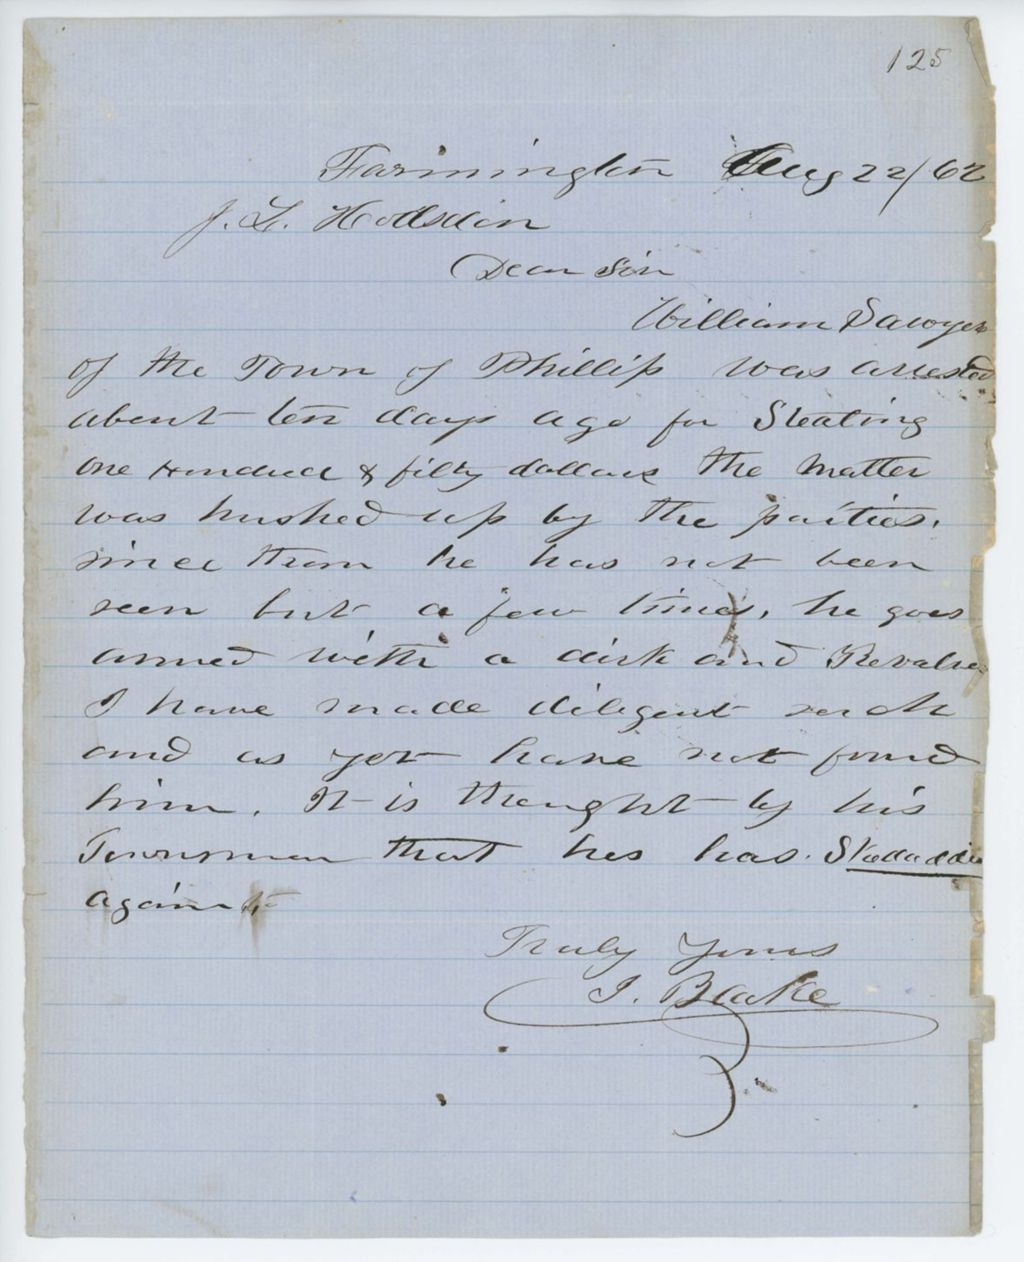 125
Farmington Aug 22/62
J. L. Hodsdon
Dear Sir
William Sawyer
of the Town of Phillip was arrested
about ten days ago for Stealing
one Hundred & fifty dollars the Matter
was hushed up by the parties.
since then he has not been
seen but a few times, he goes
armed with a dirk and Revolver
I have made diligent serch
and as yet have not found
him. It is thought by his
Townsman that hes has. Skedaddled
again
Truly Yours
I. Blake